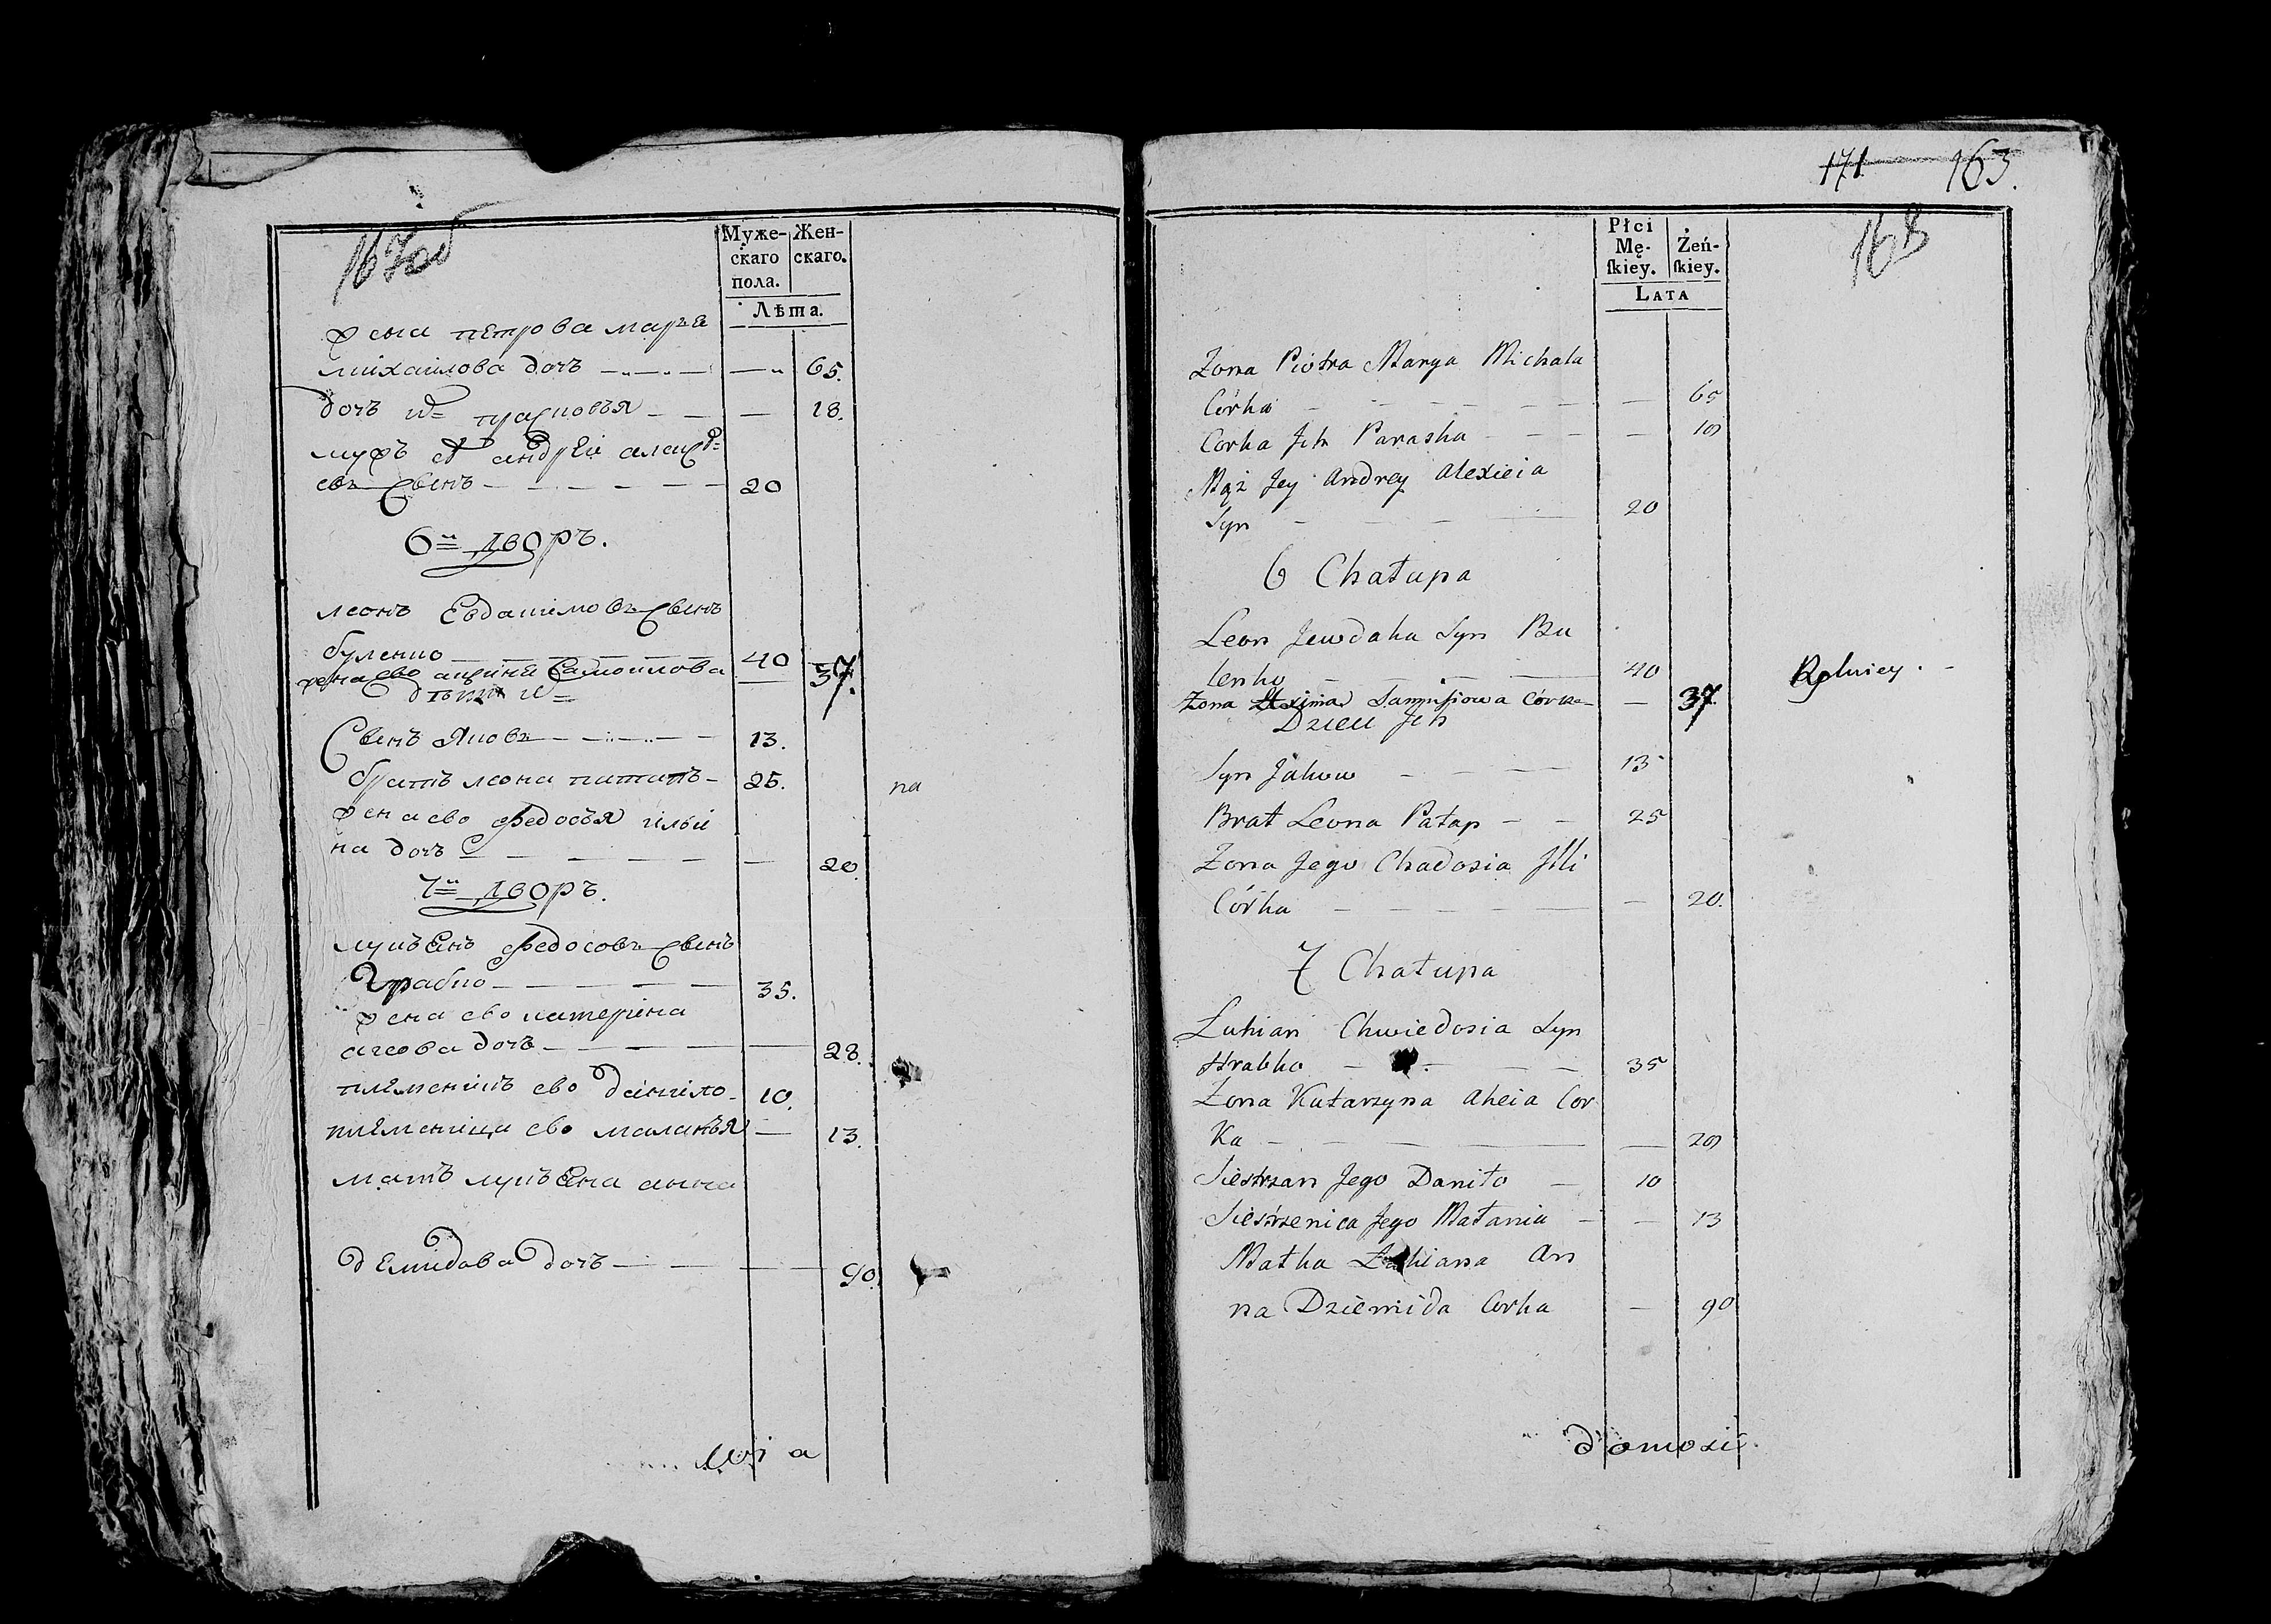 167об
Муже- Жен-
скаго скаго.
пола.
Лѣта.
жена петрова маръя
михаилова дочъ — — 65.
дочъ их прасковъя — — 18.
мужъ ей андрей алексѣ=
евъ сынъ — 20
6й дворъ.
леонъ Евдакимовъ сынъ
буленко — 40
жена ево аксиня Самоилова 37.
дѣти их
Сынъ Яковъ — 13.
братъ леона патапъ — 25. na
жена ево федосъя ильи
на дочъ — — 20.
7й дворъ.
лукъянъ федосовъ сынъ
Грабко — 35.
жена ево катерина
агеова дочъ — — 28.
племеникъ ево данило — 10.
племеница ево маланъя — 13.
матъ лукъяна анна
демидова дочъ — — 90.
171 163.
168
Płci
Mę- Żeń-
ſkiey. ſkiey.
LATA
Żona Piotra Marya Michała
Córka — — 65
Corka Ich Paraska — — 18
Mąż Jey Andrey Alexieia
Syn — 20
6 Chałupa
Leon Jewdaka Syn Bu
lenko — 40 Rolnicy.
Żona Axinia Samuyłowa Córka — 37.
Dzieci Ich
Syn Jakow — 13
Brat Leona Patap — 25
Żona Jego Chadosia Illi
Córka — — 20.
7 Chałupa
Łukian Chwiedosia Syn
Hrabko — 35
Żona Katarzyna Aheia Cor
ka — — 28
Siestrzan Jego Daniło — 10
Siestrzenica Jego Małania — — 13
Matka Łukiana An
na Dziemida Corka — 90
domosi